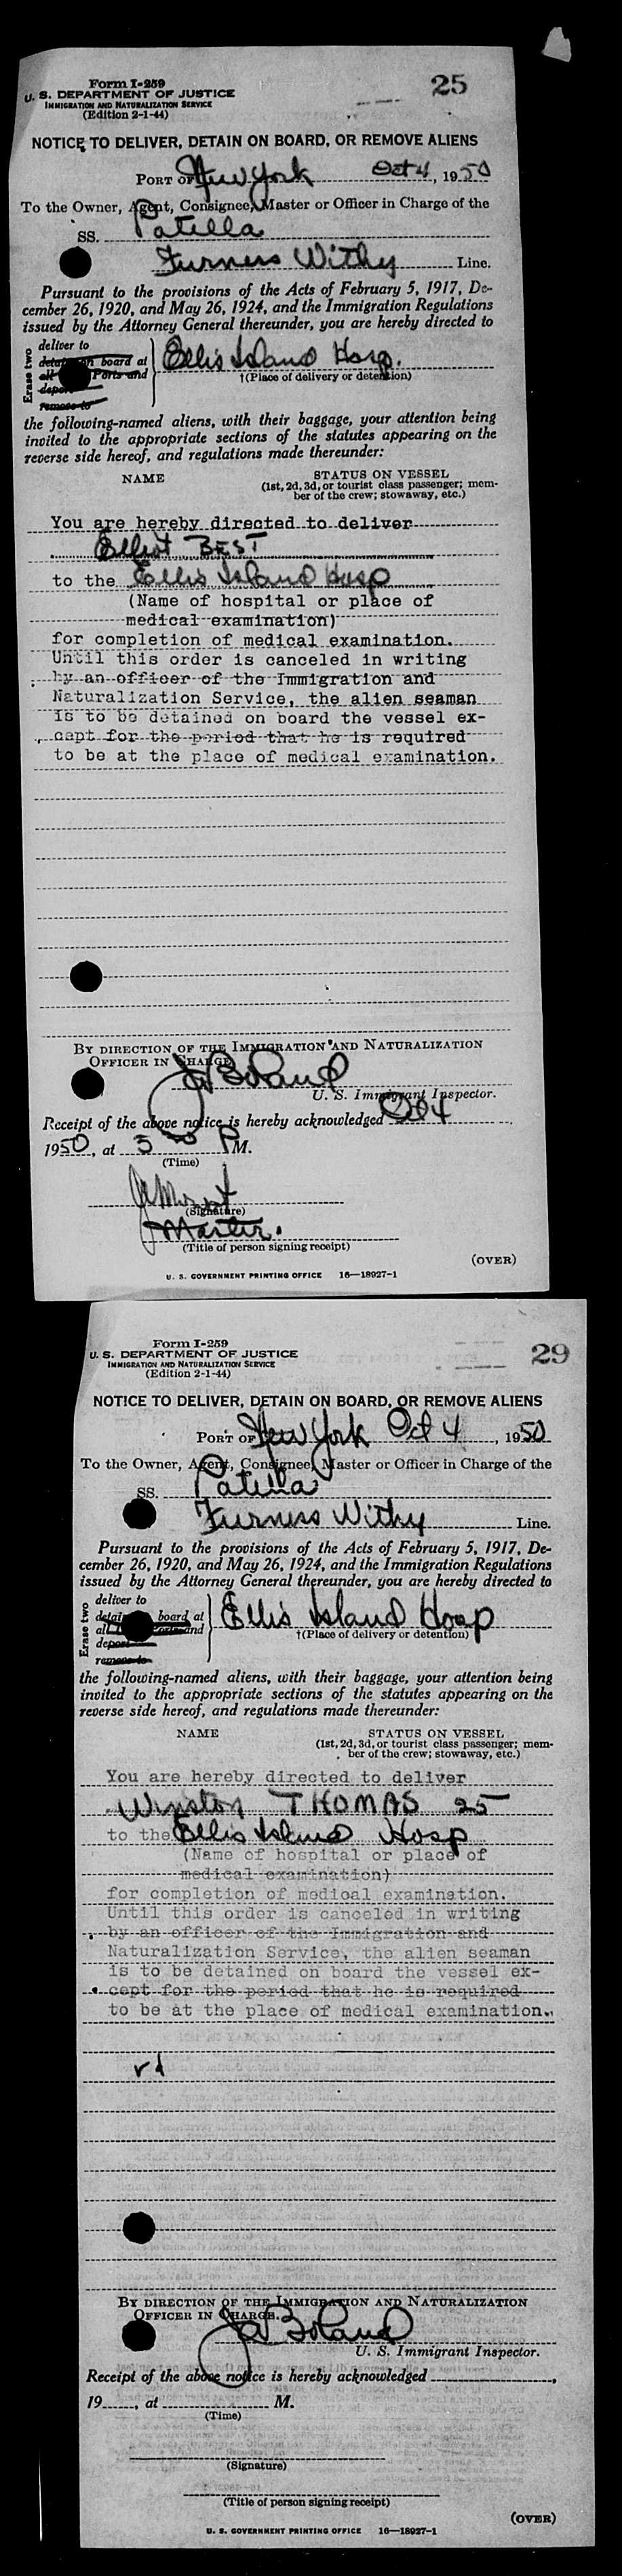 Form I-259
25
U. S. DEPARTMENT OF JUSTICE
IMMIGRATION AND NATURALIZATION SERVICE
(Edition 2-1-44)
NOTICE TO DELIVER, DETAIN ON BOARD, OR REMOVE ALIENS
PORT OF New York Oct 4, 1950
To the Owner, Agent, Consignee, Master or Officer in Charge of the
SS. Patella
Furness Withy Line.
Pursuant to the provisions of the Acts of February 5, 1917, De-
cember 26, 1920, and May 26, 1924, and the Immigration Regulations
issued by the Attorney General thereunder, you are hereby directed to
Erase two
deliver to
detain on board at
all Ports and
deport
remove to
Ellis Island Hosp.
†(Place of delivery or detention)
the following-named aliens, with their baggage, your attention being
invited to the appropriate sections of the statutes appearing on the
reverse side hereof, and regulations made thereunder:
NAME STATUS ON VESSEL
(1st, 2d, 3d, or tourist class passenger; mem-
ber of the crew; stowaway, etc.)
You are hereby directed to deliver
Elliot BEST
to the Ellis Island Hosp
(Name of hospital or place of
medical examination)
for completion of medical examination.
Until this order is canceled in writing
by an officer of the Immigration and
Naturalization Service, the alien seaman
is to be detained on board the vessel ex-
cept for the period that he is required
to be at the place of medical examination.
BY DIRECTION OF THE IMMIGRATION AND NATURALIZATION
OFFICER IN CHARGE.
J Boland
U. S. Immigrant Inspector.
Receipt of the above notice is hereby acknowledged Oct 4
1950, at 5 00 P M.
(Time)
(Signature)
Master.
(Title of person signing receipt)
(OVER)
U. S. GOVERNMENT PRINTING OFFICE 16—18927-1
Form I-259
29
U. S. DEPARTMENT OF JUSTICE
IMMIGRATION AND NATURALIZATION SERVICE
(Edition 2-1-44)
NOTICE TO DELIVER, DETAIN ON BOARD, OR REMOVE ALIENS
PORT OF New York Oct 4, 1950
To the Owner, Agent, Consignee, Master or Officer in Charge of the
SS. Patella
Furness Withy Line.
Pursuant to the provisions of the Acts of February 5, 1917, De-
cember 26, 1920, and May 26, 1924, and the Immigration Regulations
issued by the Attorney General thereunder, you are hereby directed to
Erase two
deliver to
detain on board at
all Ports and
deport
remove to
Ellis Island Hosp
†(Place of delivery or detention)
the following-named aliens, with their baggage, your attention being
invited to the appropriate sections of the statutes appearing on the
reverse side hereof, and regulations made thereunder:
NAME STATUS ON VESSEL
(1st, 2d, 3d, or tourist class passenger; mem-
ber of the crew; stowaway, etc.)
You are hereby directed to deliver
Winston THOMAS 25
to the Ellis Island Hosp
(Name of hospital or place of
medical examination)
for completion of medical examination.
Until this order is canceled in writing
by an officer of the Immigration and
Naturalization Service, the alien seaman
is to be detained on board the vessel ex-
cept for the period that he is required
to be at the place of medical examination.
BY DIRECTION OF THE IMMIGRATION AND NATURALIZATION
OFFICER IN CHARGE.
J Boland
U. S. Immigrant Inspector.
Receipt of the above notice is hereby acknowledged
19 , at M.
(Time)
(Signature)
(Title of person signing receipt)
(OVER)
U. S. GOVERNMENT PRINTING OFFICE 16—18927-1